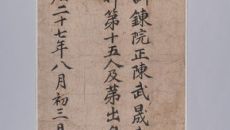 訓鍊院正陳武晟
科第十五人及第出身
二十七年八月初三日